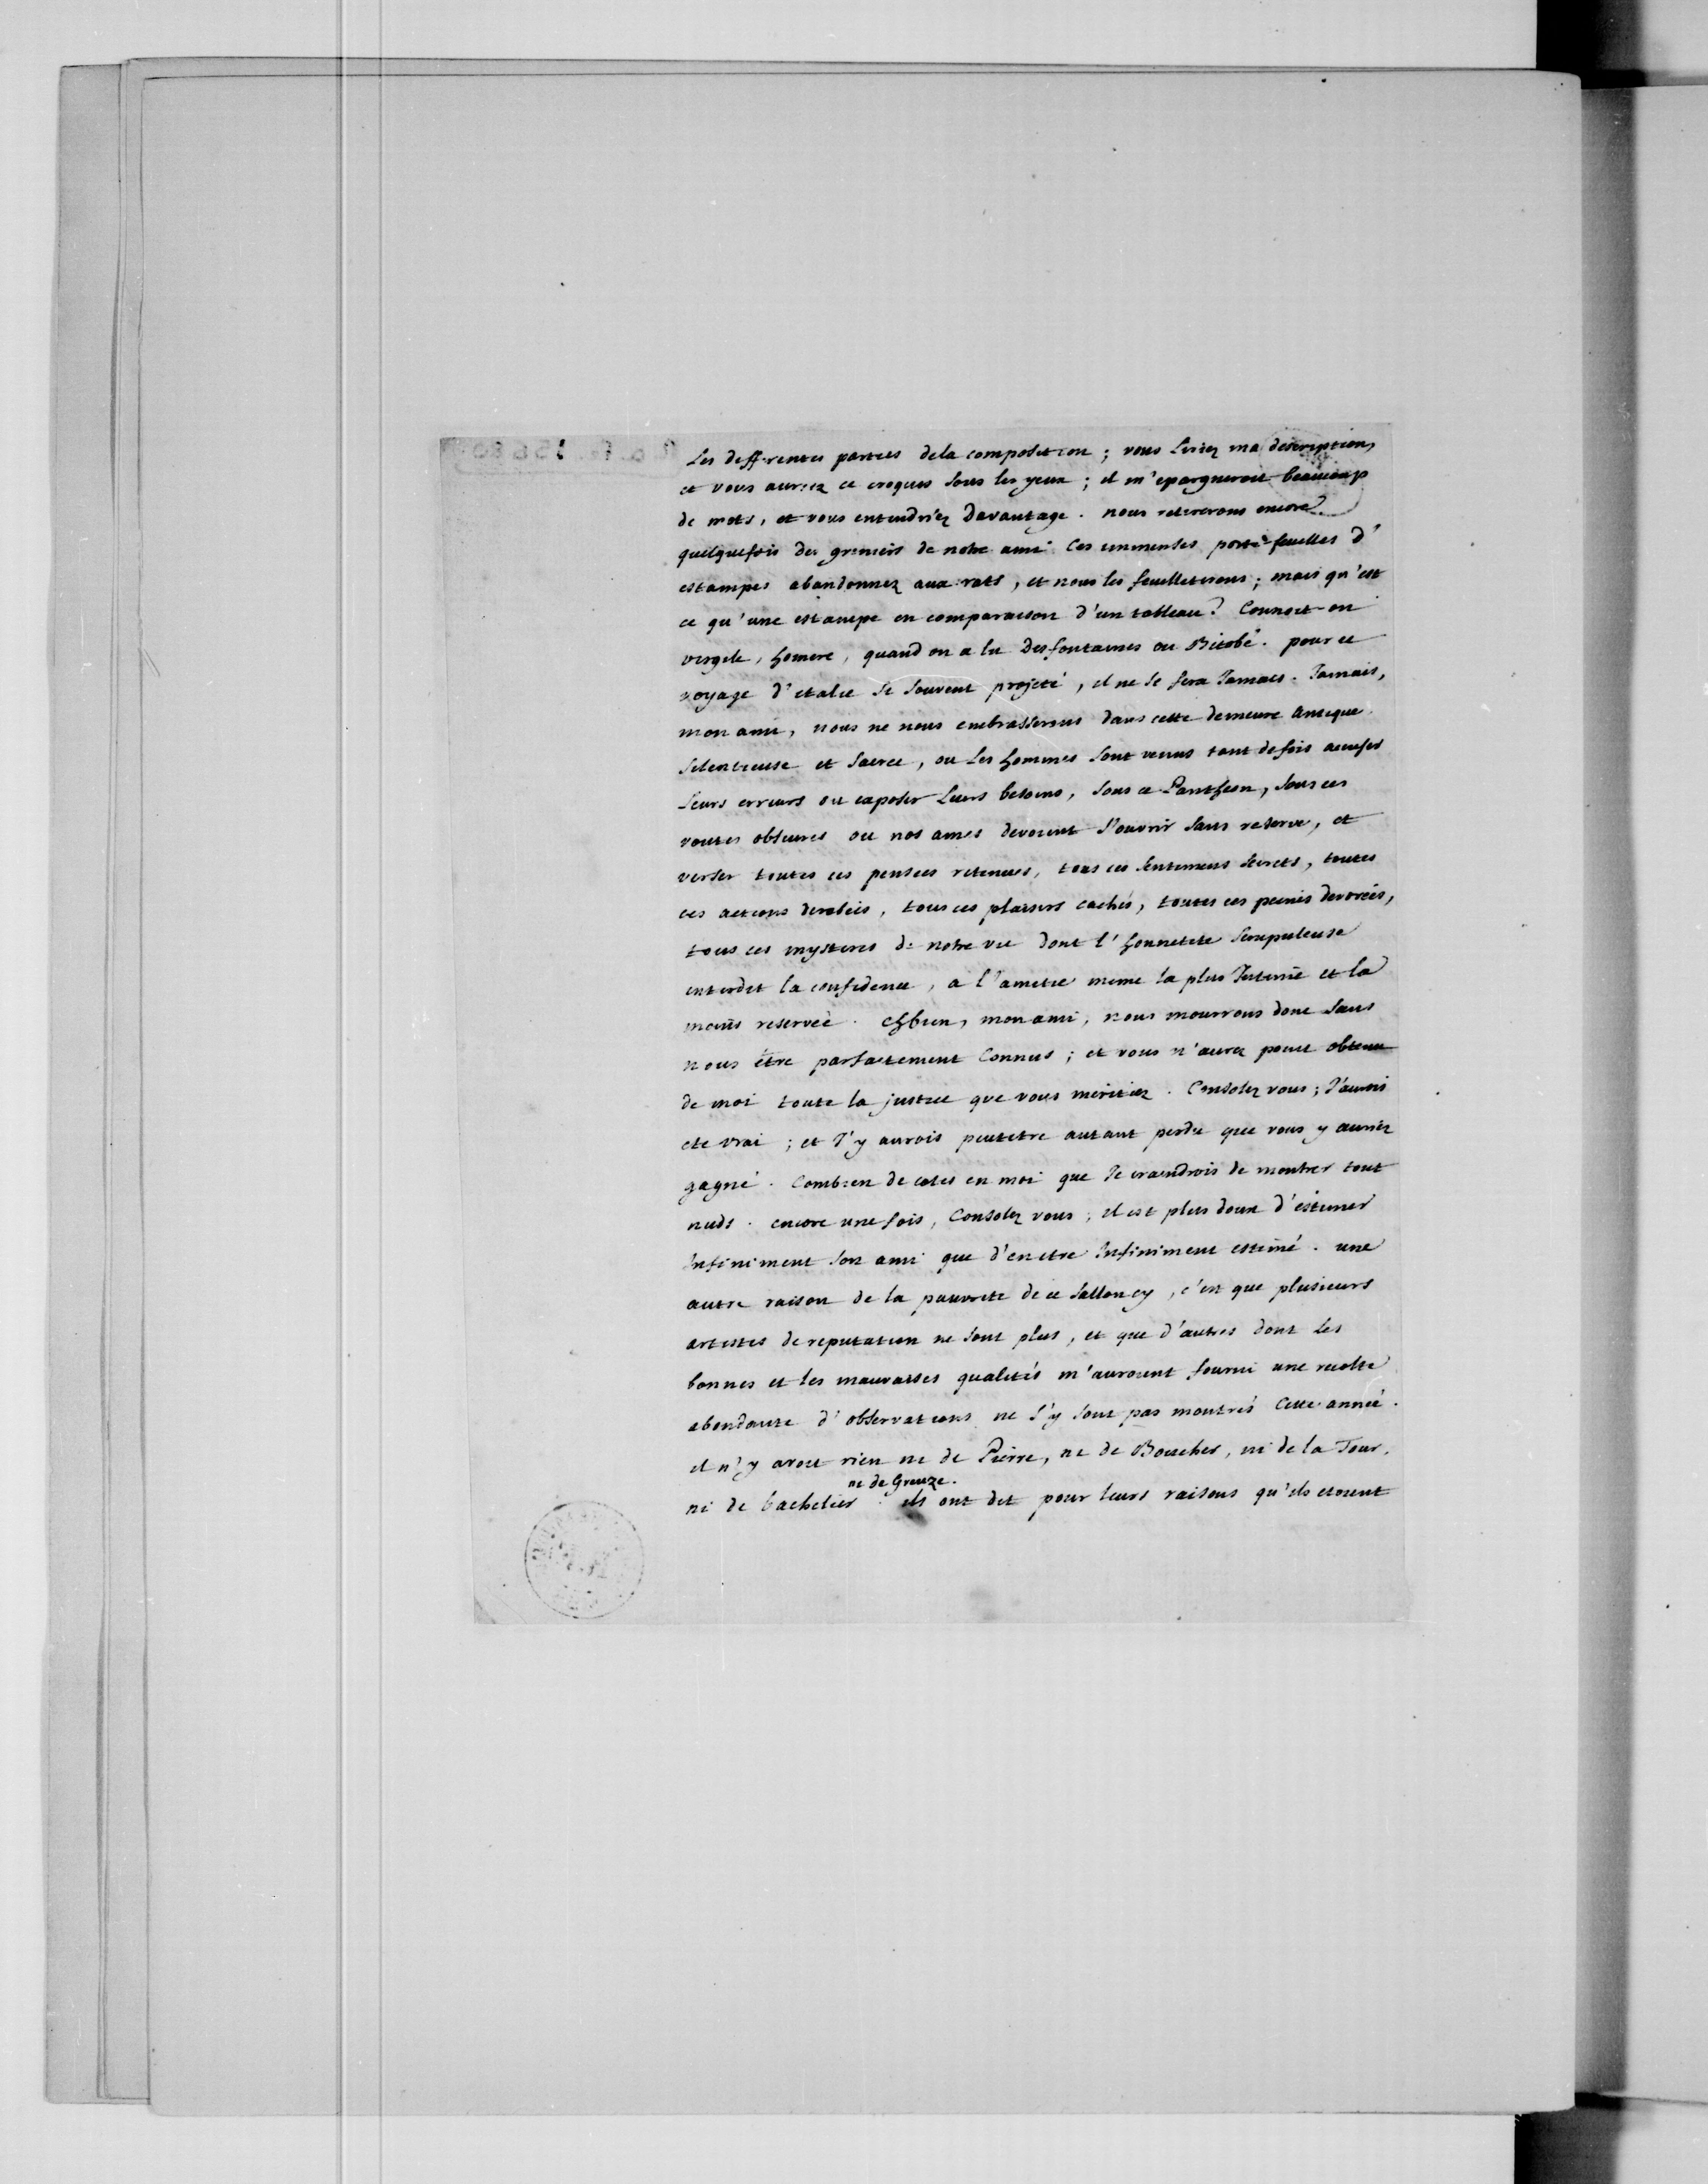 les differentes parties dela composition ; vous liriez ma description,
et vous auriez ce croquis sous les yeux ; il m'epargneroit beaucoup
de mots, et vous entendriez davantage . nous retirerons encore
quelquefois des greniers de notre ami ces immenses porte-feuilles d'
estampes abandonnez aux rats, et nous les feuilleterons ; mais qu'est
ce qu'une estampe en comparaison d'un tableau ? Connoit-on
virgile, homere, quand on a lu Desfontaines ou Bitobé . pour ce
voyage d'italie si souvent projeté, il ne se fera Jamais . Jamais,
mon ami, nous ne nous embrasserons dans cette demeure antique
silentieuse et sacree, ou les hommes sont venus tant de fois accuser
leurs erreurs ou exposer leurs besoins, sous ce Pantheon, sous ces
voutes obscures ou nos ames devoient s'ouvrir sans reserve, et
verser toutes ces pensees retenues, tous ces sentimens secrets, toutes
ces actions derobées, tous ces plaisirs cachés, toutes ces peines devorées,
tous ces mysteres de notre vie dont l'honnetete scrupuleuse
interdit la confidence, a l'amitie meme la plus Intime et la
moins reservée . ehbien, mon ami, nous mourrons donc sans
nous être parfaitement Connus ; et vous n'aurez point obtenu
de moi toute la justice que vous meritiez . Consolez vous ; J'aurois
ete vrai ; et J'y aurois peutetre autant perdu que vous y auriez
gagné . Combien de cotes en moi que Je craindrois de montrer tout
nuds . encore une fois, Consolez vous ; il est plus doux d'estimer
Infiniment son ami que d'en etre Infiniment estimé . une
autre raison de la pauvrete de ce sallon cy, c'est que plusieurs
artistes de reputation ne sont plus, et que d'autres dont les
bonnes et les mauvaises qualités m'auroient fourni une recolte
abondante d'observations ne s'y sont pas montrés Cette année .
il n'y avoit rien ni de Pierre, ni de Boucher, ni de la Tour,
ni de Greuze .
ni de bachelier . ils ont dit pour leurs raisons qu'ils etoient